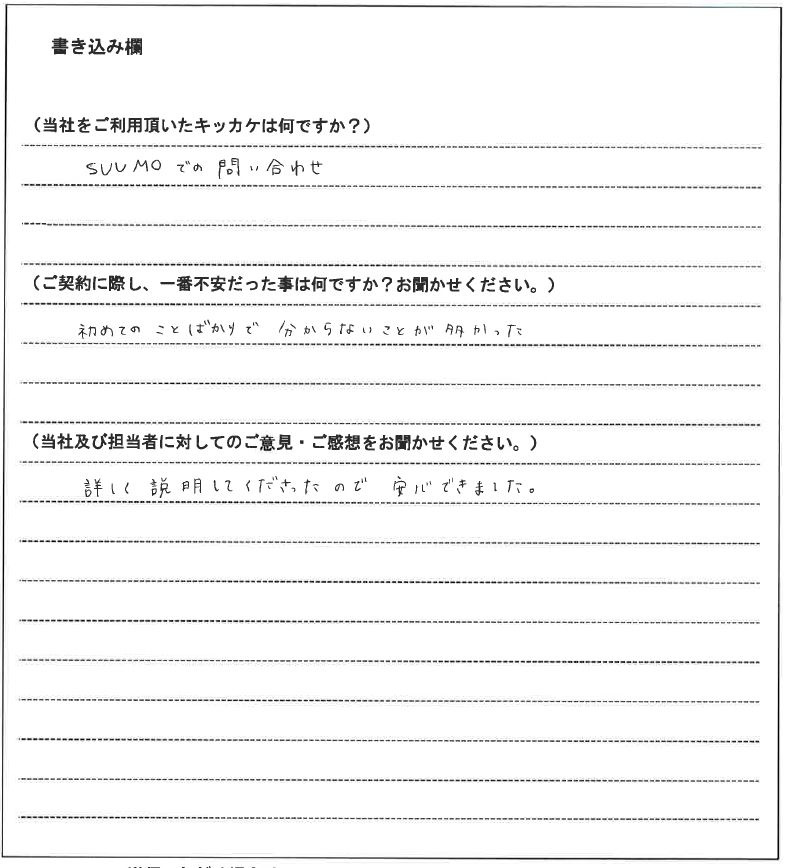 書き込み欄
（当社をご利用頂いたキッカケは何ですか？）
SUUMOでの問い合わせ
（ご契約に際し、一番不安だった事は何ですか？お聞かせください。）
初めてのことばかりで分からないことが多かった
（当社及び担当者に対してのご意見・ご感想をお聞かせください。）
詳しく説明してくださったので安心できました。